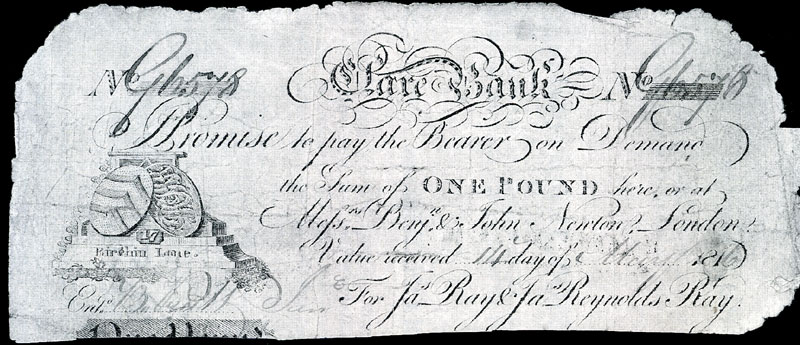 No G6578 Clare Bank No G6578
I Promise to pay the Bearer on Demand
the Sum of ONE POUND here, or at
Messrs. Benjn. & John Newton, London.
17
Birchin Lane.
Value received 14 day of 181
Entd. For Jas. Ray & Jas. Reynolds Ray.